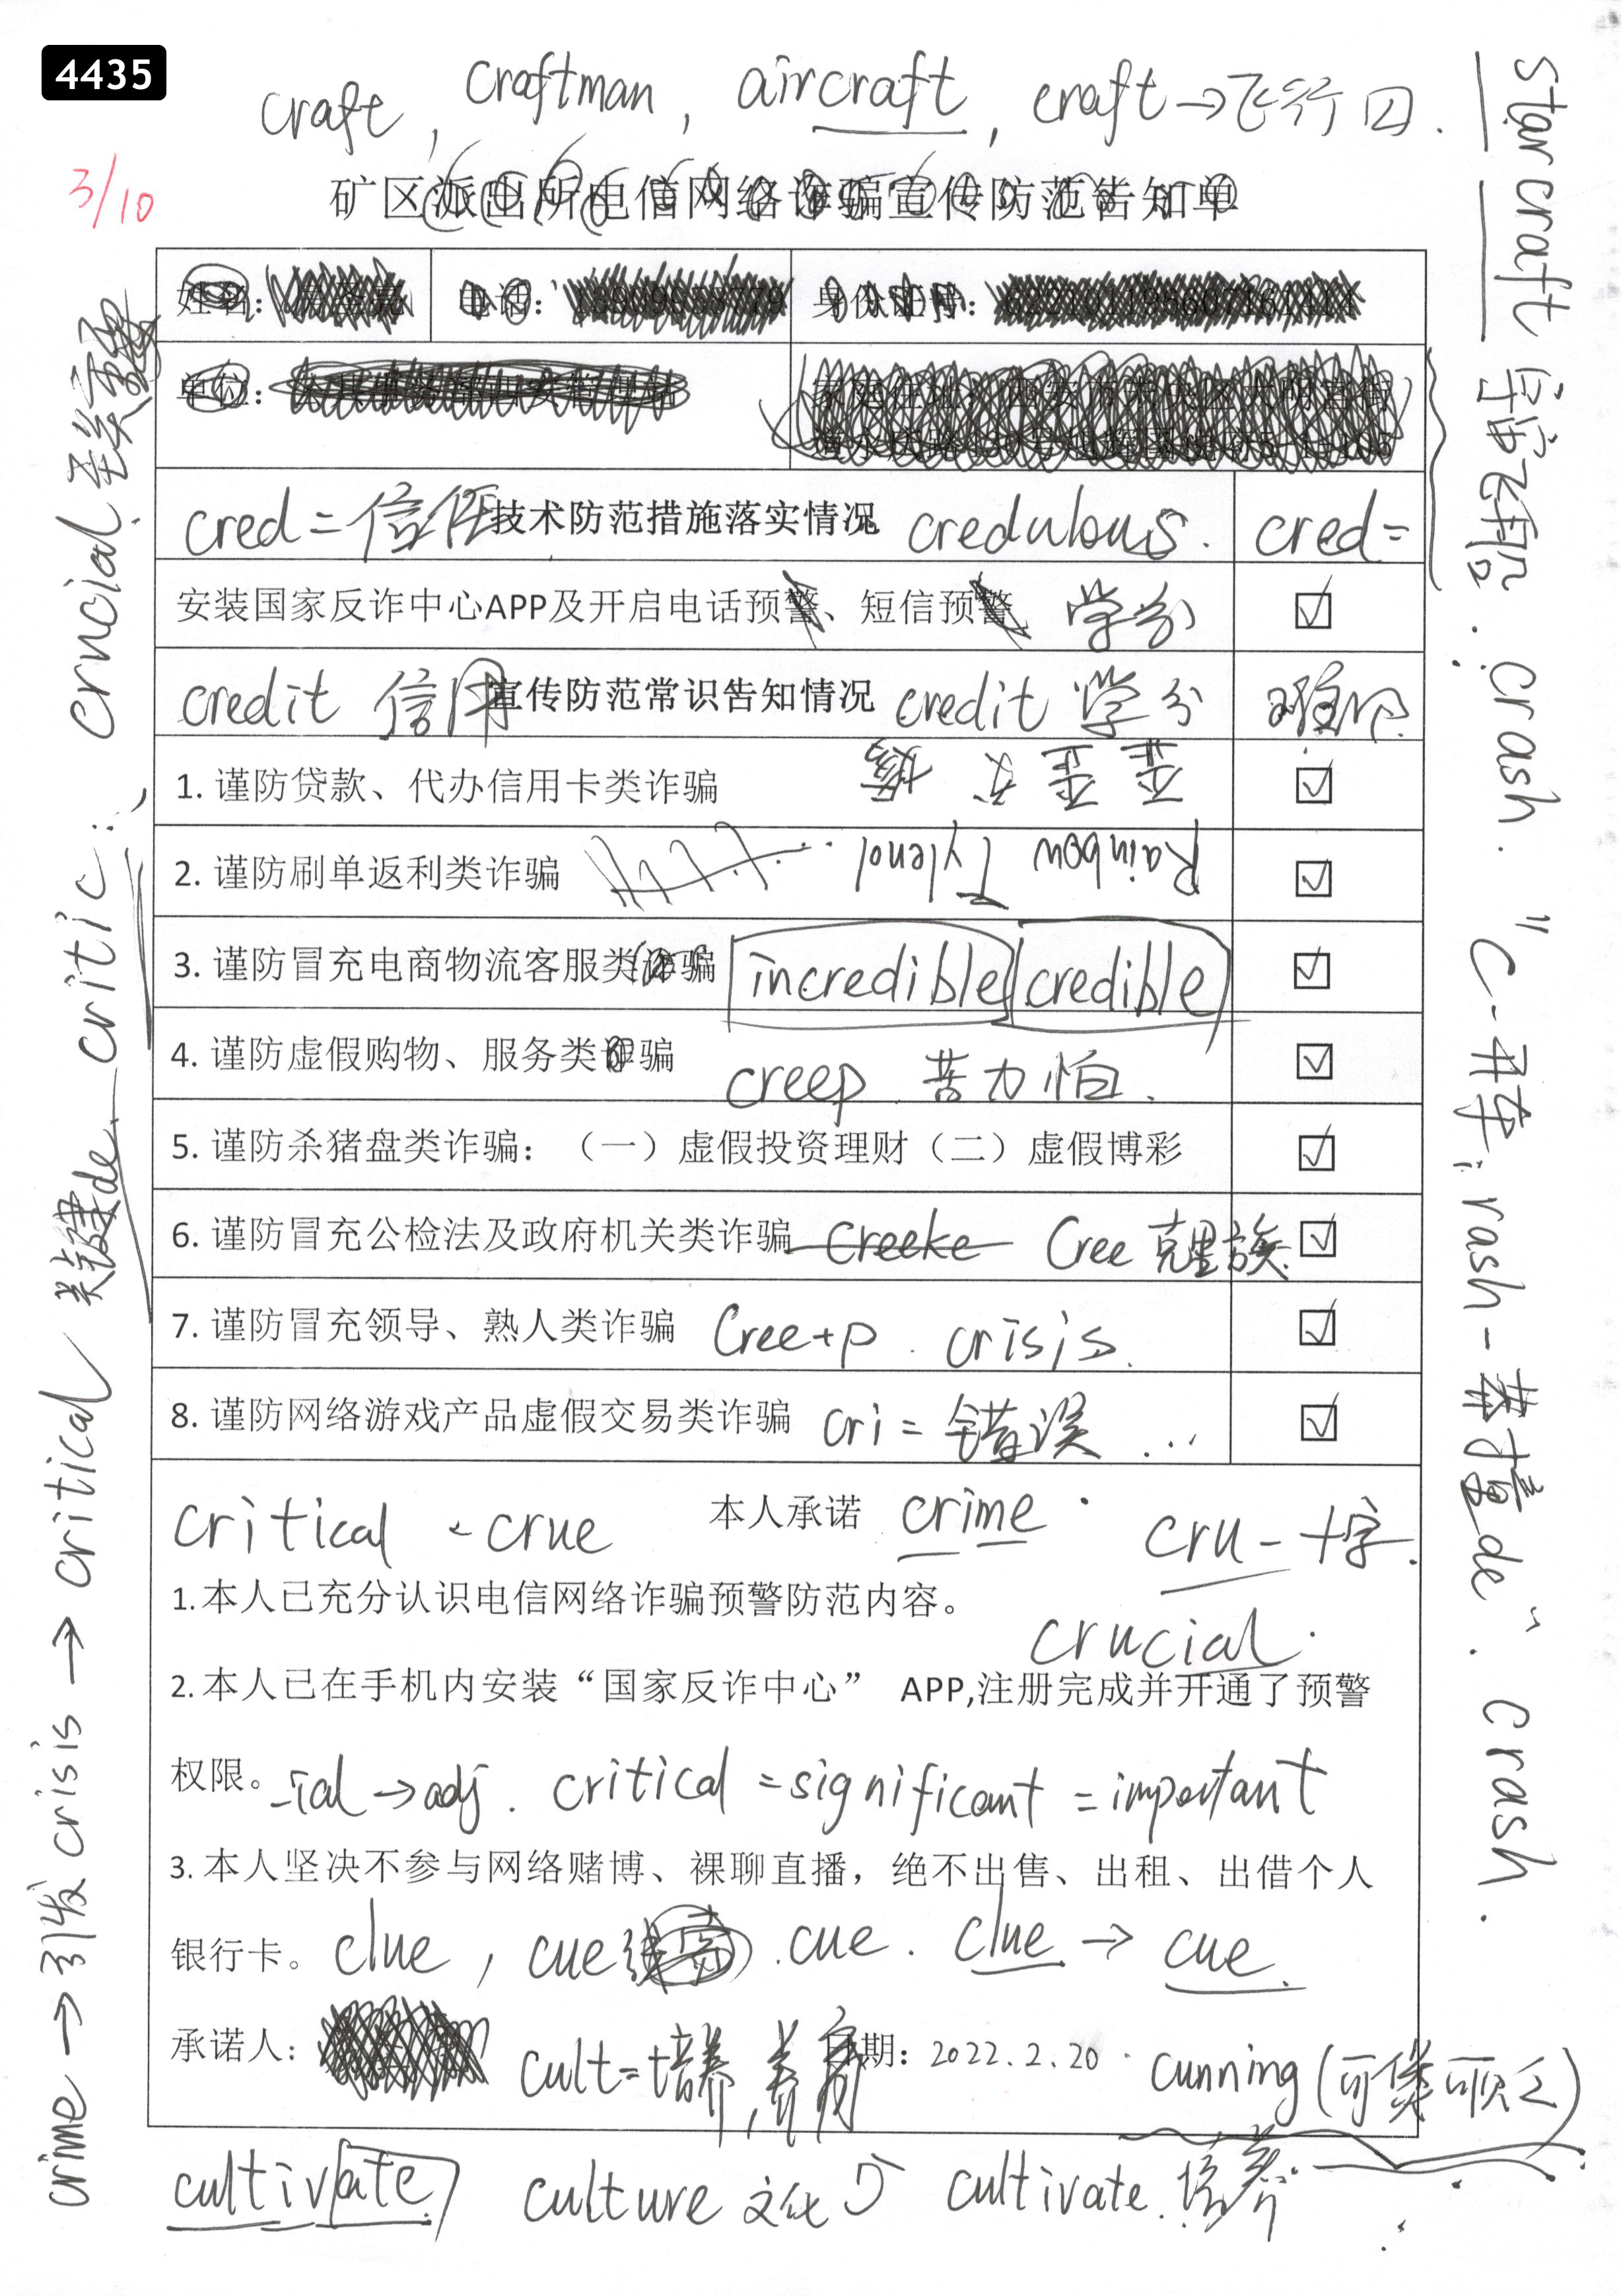 4435
craft, craftman, aircraft, craft→飞行
3/10
矿区派出所电信网络诈骗宣传防范告知单
姓名： 电话： 身份证号：
单位：
cred=信任 技术防范措施落实情况 credulous. cred=
安装国家反诈中心APP及开启电话预警、短信预警 学分 ☑
credit 信用 宣传防范常识告知情况 credit 学分
1. 谨防贷款、代办信用卡类诈骗 ☑
2. 谨防刷单返利类诈骗 Rainbow Tylenol ☑
3. 谨防冒充电商物流客服类诈骗 incredible credible ☑
4. 谨防虚假购物、服务类诈骗 creep 苦力怕. ☑
5. 谨防杀猪盘类诈骗：（一）虚假投资理财（二）虚假博彩 ☑
6. 谨防冒充公检法及政府机关类诈骗 Creeke Cree 克里族 ☑
7. 谨防冒充领导、熟人类诈骗 Cree+p. crisis. ☑
8. 谨防网络游戏产品虚假交易类诈骗 cri=错误... ☑
critical - crue 本人承诺 crime. cru-十字.
1.本人已充分认识电信网络诈骗预警防范内容。
crucial.
2.本人已在手机内安装“国家反诈中心” APP,注册完成并开通了预警
权限。 -ial→adj. critical=significant=important
3.本人坚决不参与网络赌博、裸聊直播，绝不出售、出租、出借个人
银行卡。 clue, cue cue. clue→cue.
承诺人： cult=培养,养育 日期：2022.2.20 cunning
cultivate culture 文化 cultivate.培养.
crime→引发crisis→critical 关键de critic: crucial
Starcraft 宇宙飞船. crash. "C-开车; rash-莽撞de". crash.